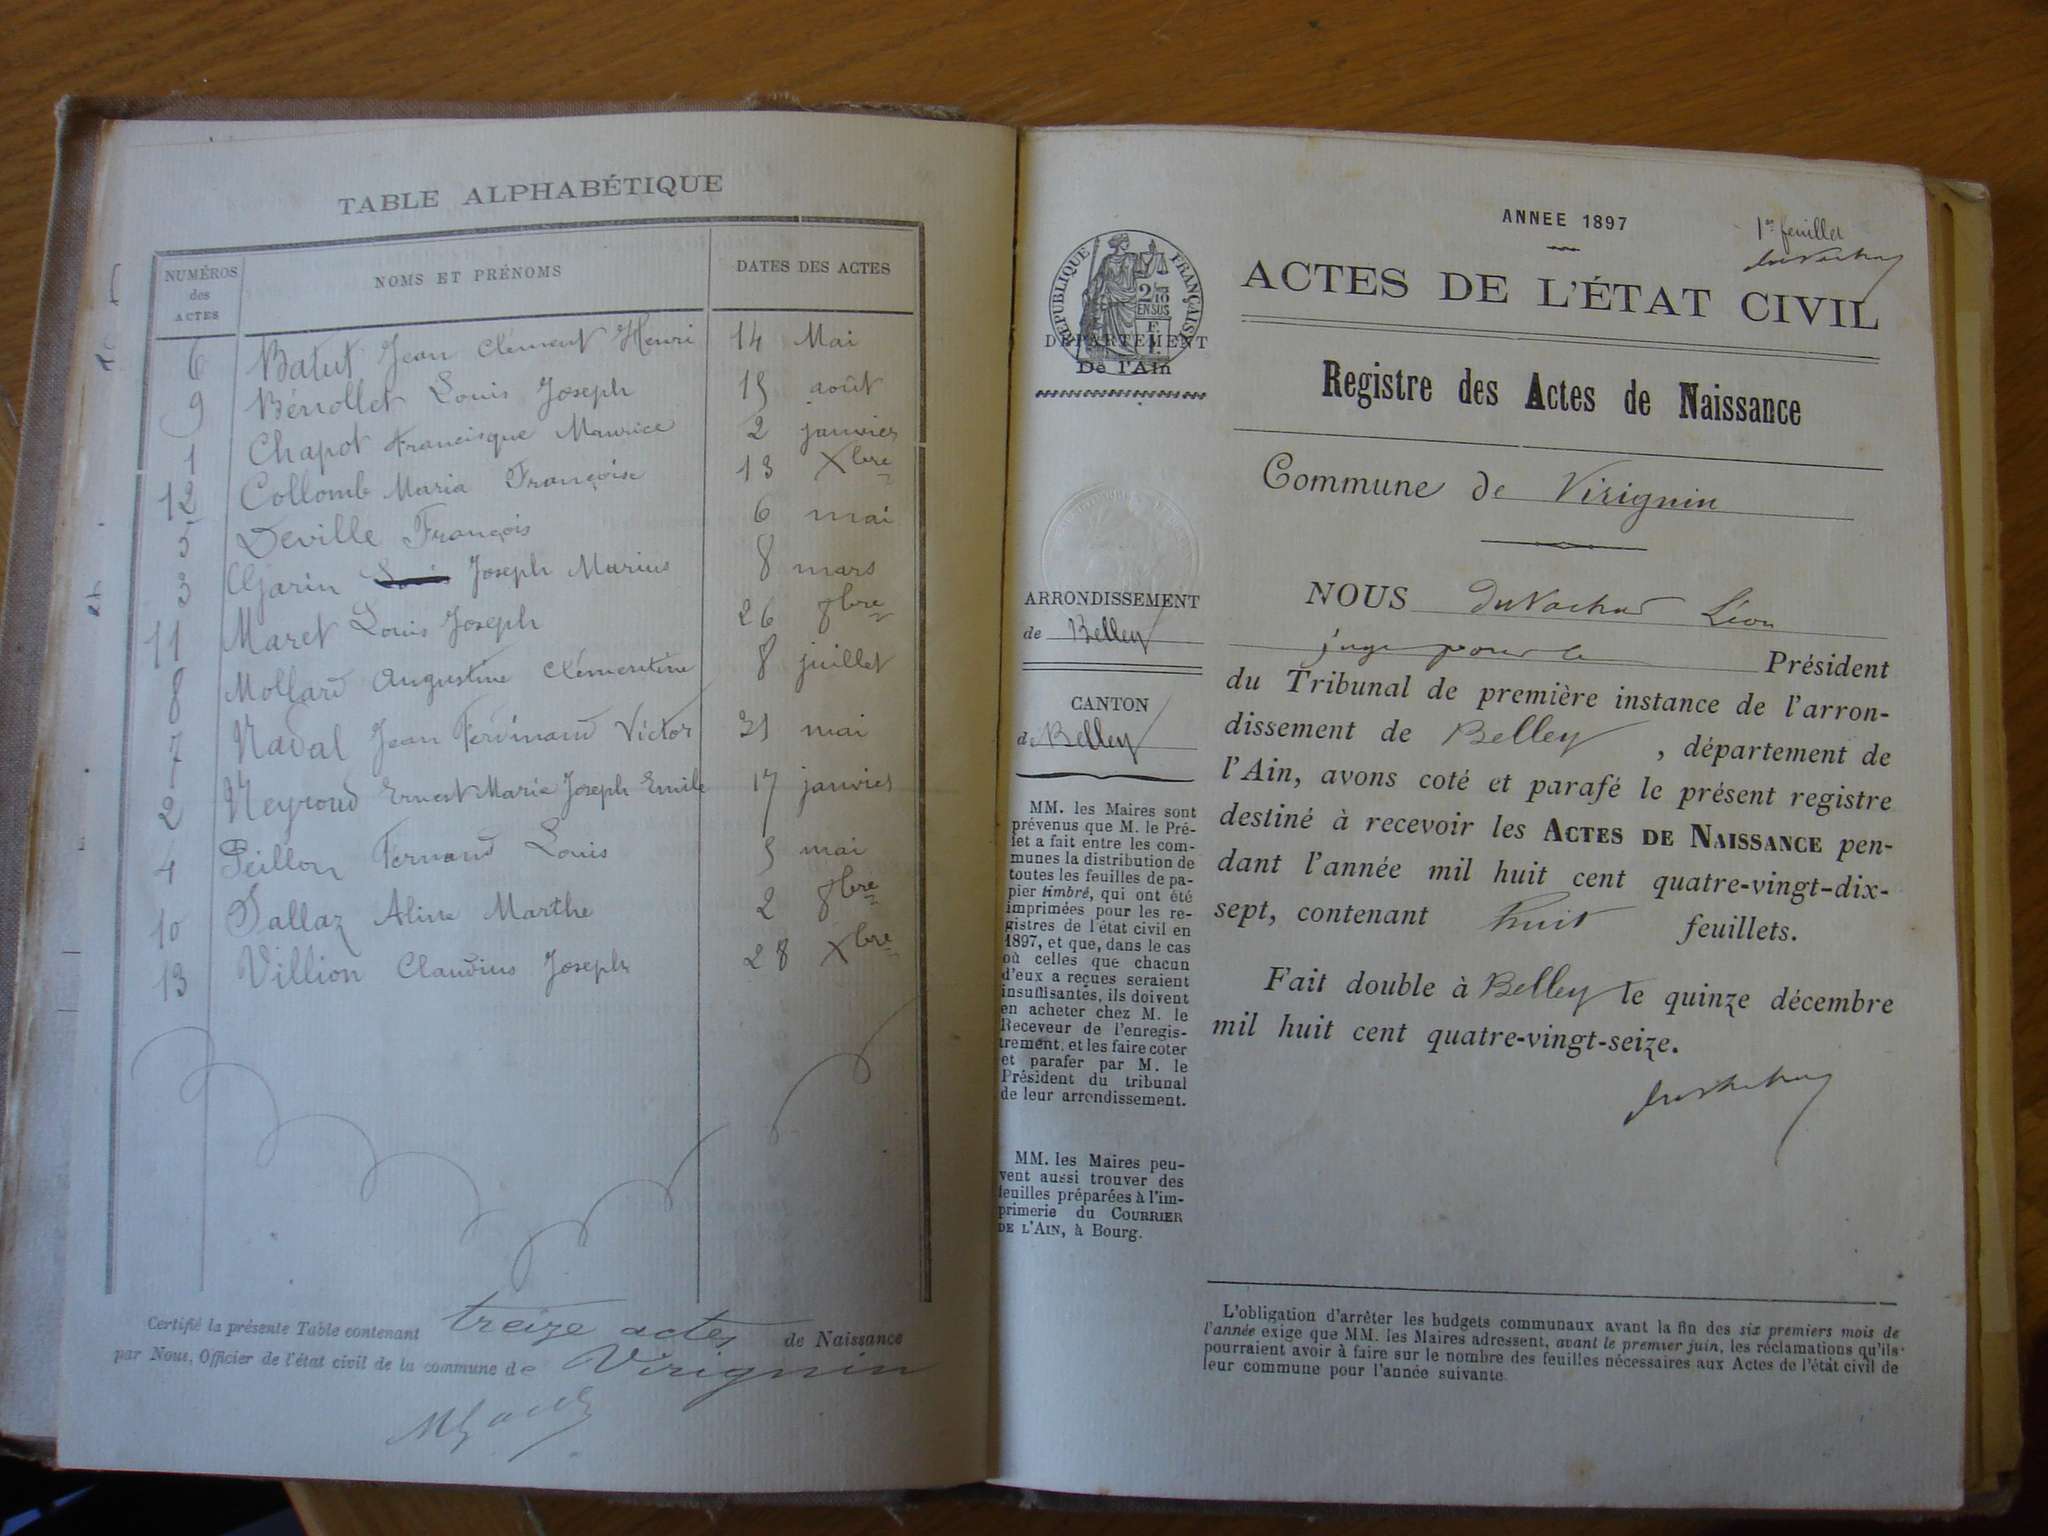 TABLE ALPHABÉTIQUE
NUMÉROS des ACTES NOMS ET PRÉNOMS DATES DES ACTES
6 Batut Jean Clément Henri 14 Mai
9 Bénollet Louis Joseph 15 août
1 Chapot Francisque Maurice 2 janvier
12 Collomb Maria Françoise 13 Xbre
5 Deville François 6 mai
3 Garin Joseph Marius 8 mars
11 Maret Louis Joseph 26 8bre
8 Mollard Augustine Clémentine 8 juillet
7 Nadal Jean Ferdinand Victor 31 mai
2 Neyroud Ernest Marie Joseph Emile 17 janvier
4 Peillon Fernand Louis 5 mai
10 Tallaz Aline Marthe 2 8bre
13 Villion Claudius Joseph 28 Xbre
Certifié la présente Table contenant treize actes de Naissance
par Nous, Officier de l'état civil de la commune de Virignin
ANNEE 1897
1er feuillet
RÉPUBLIQUE FRANÇAISE
2/10 EN SUS
DÉPARTEMENT
De l'Ain
ACTES DE L'ÉTAT CIVIL
Registre des Actes de Naissance
Commune de Virignin
ARRONDISSEMENT
de Belley
CANTON
de Belley
MM. les Maires sont
prévenus que M. le Pré-
fet a fait entre les com-
munes la distribution de
toutes les feuilles de pa-
pier timbré, qui ont été
imprimées pour les re-
gistres de l'état civil en
1897, et que, dans le cas
où celles que chacun
d'eux a reçues seraient
insuffisantes, ils doivent
en acheter chez M. le
Receveur de l'enregis-
trement, et les faire coter
et parafer par M. le
Président du tribunal
de leur arrondissement.
MM. les Maires peu-
vent aussi trouver des
feuilles préparées à l'im-
primerie du COURRIER
DE L'AIN, à Bourg.
NOUS Léon
juge pour le Président
du Tribunal de première instance de l'arron-
dissement de Belley, département de
l'Ain, avons coté et parafé le présent registre
destiné à recevoir les ACTES DE NAISSANCE pen-
dant l'année mil huit cent quatre-vingt-dix-
sept, contenant huit feuillets.
Fait double à Belley le quinze décembre
mil huit cent quatre-vingt-seize.
L'obligation d'arrêter les budgets communaux avant la fin des six premiers mois de
l'année exige que MM. les Maires adressent, avant le premier juin, les réclamations qu'ils
pourraient avoir à faire sur le nombre des feuilles nécessaires aux Actes de l'état civil de
leur commune pour l'année suivante.